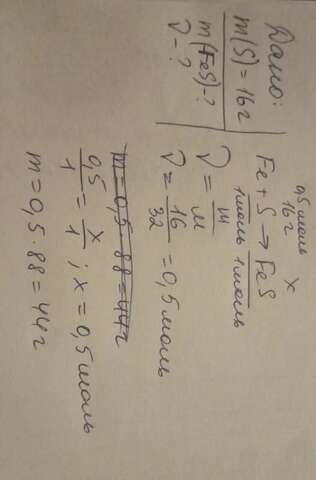 Дано:
m(S)=16г
m(FeS)-?
ν-?
0,5моль x
16г
Fe+S→FeS
1моль 1моль
ν = m/M
ν = 16/32 = 0,5моль
m=0,5·88=44г
0,5/1 = x/1 ; x=0,5моль
m=0,5·88=44г